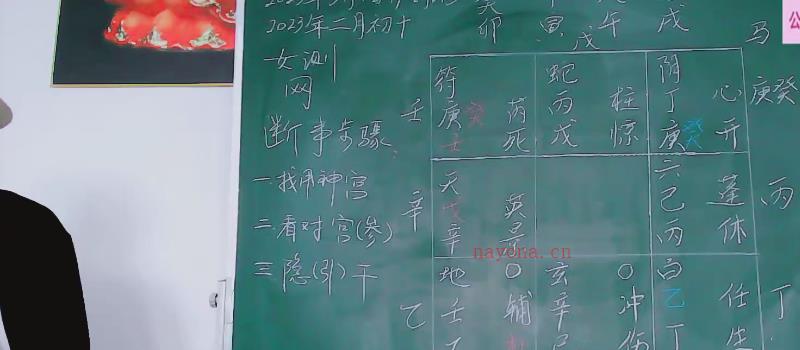 2023年二月初十
癸卯 寅 午 戌
戊
马
女测
网
断事步骤:
一.找用神宫
二.看对宫(参)
三.隐(引)干
壬
符
庚癸
壬
芮
死
蛇
丙
戊
柱
惊
阴
丁
庚癸
心
开
庚癸
辛
天
戊
辛
英
景
六
己
丙
蓬
休
丙
乙
地
壬
O
辅
玄
辛
O
冲
伤
白
乙
丁
任
生
丁
nayona.cn
公